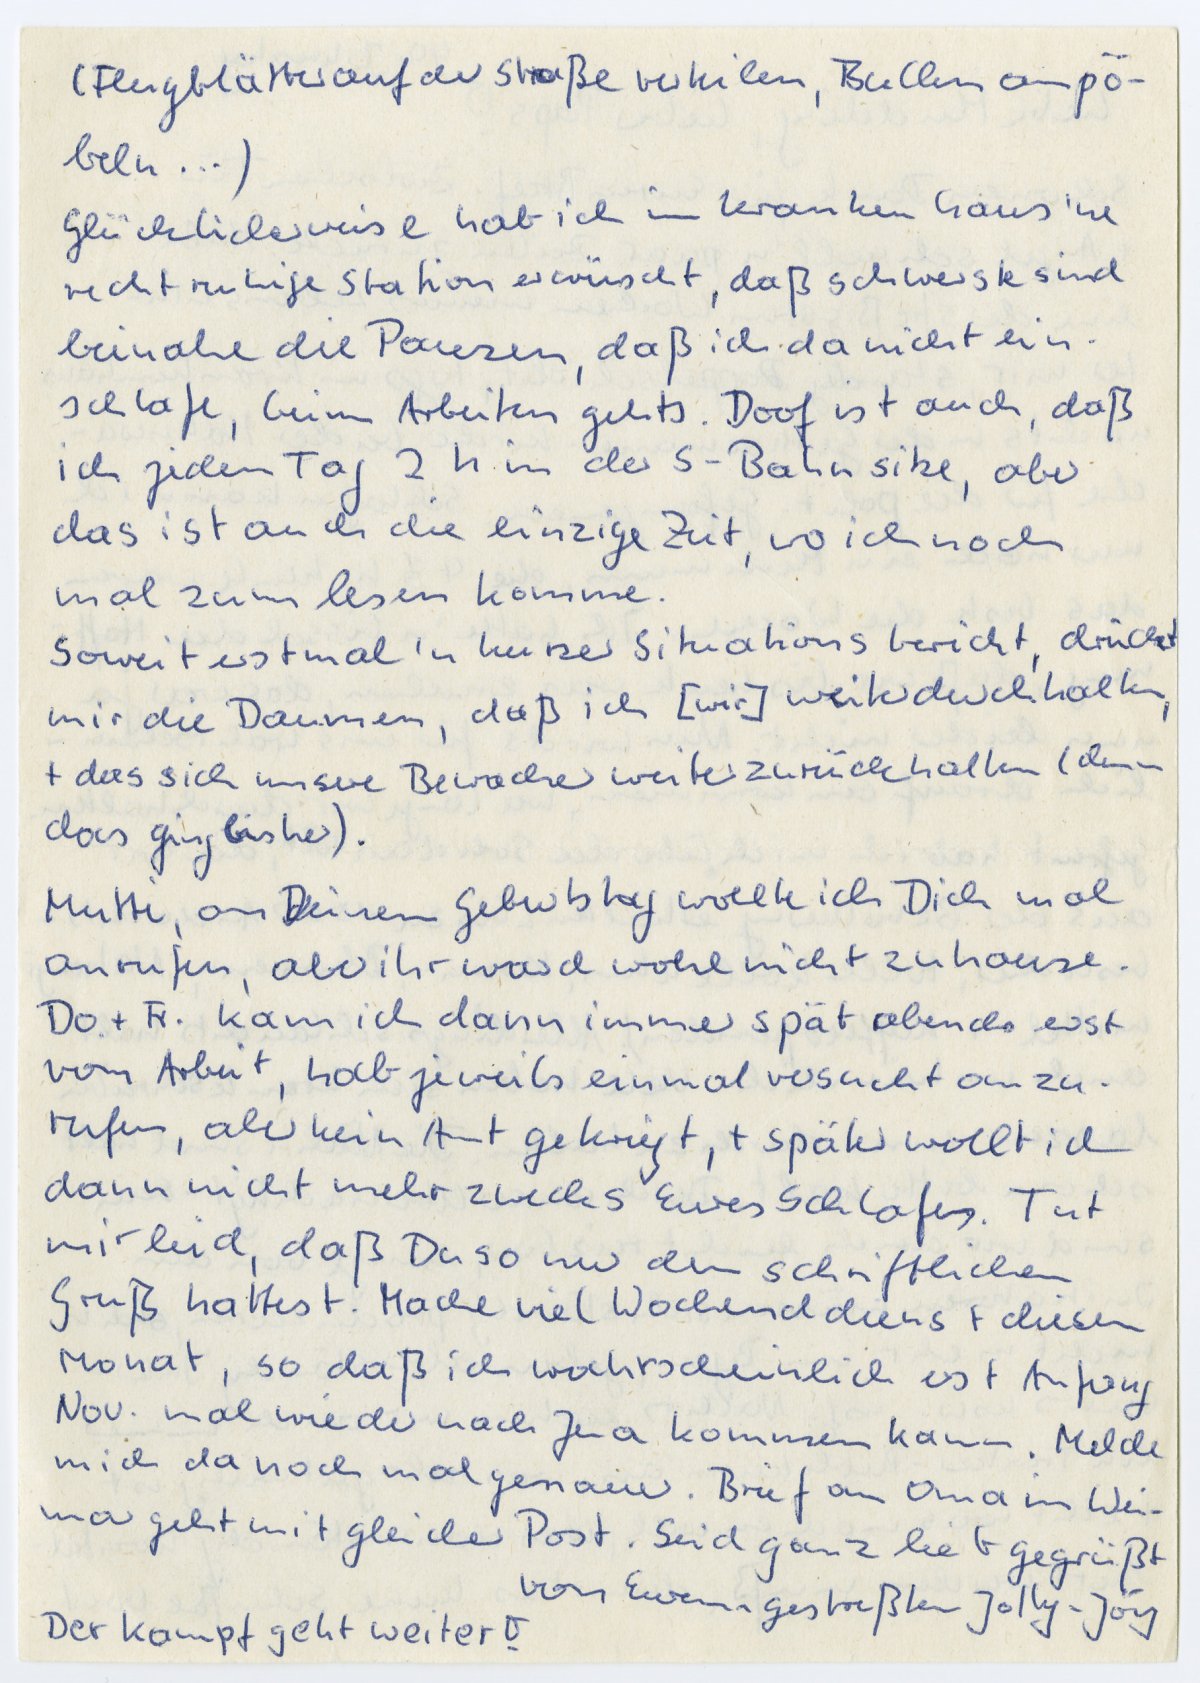 (Flugblätter auf der Straße verteilen, Bullen anpö-
beln ...)
Glücklicherweise hab ich im Krankenhaus 'ne
recht ruhige Station erwischt, daß schwerste sind
beinahe die Pausen, daß ich da nicht ein-
schlafe, beim Arbeiten gehts. Doof ist auch, daß
ich jeden Tag 2 h in der S-Bahn sitze, aber
das ist auch die einzige Zeit, wo ich noch
mal zum lesen komme.
Soweit erstmal 'n kurzer Situationsbericht, drückt
mir die Daumen, daß ich [wir] weiter durchhalten,
+ das sich unsere Bewacher weiter zurückhalten (denn
das ging bisher).
Mutti, an Deinem Geburtstag wollte ich Dich mal
anrufen, aber ihr ward wohl nicht zuhause.
Do. + Fr. kam ich dann immer spät abends erst
vom Arbeit, hab jeweils einmal versucht anzu-
rufen, aber kein Amt gekriegt, + später wollt ich
dann nicht mehr zwecks Eures Schlafes. Tut
mir leid, daß Du so nur den schriftlichen
Gruß hattest. Mache viel Wochenddienst diesen
Monat, so daß ich wahrscheinlich erst Anfang
Nov. mal wieder nach Jena kommen kann. Melde
mich da noch mal genauer. Brief an Oma in Wei-
mar geht mit gleicher Post. Seid ganz lieb gegrüßt
von Eurem gestreßten Jolly-Jörg
Der Kampf geht weiter!!